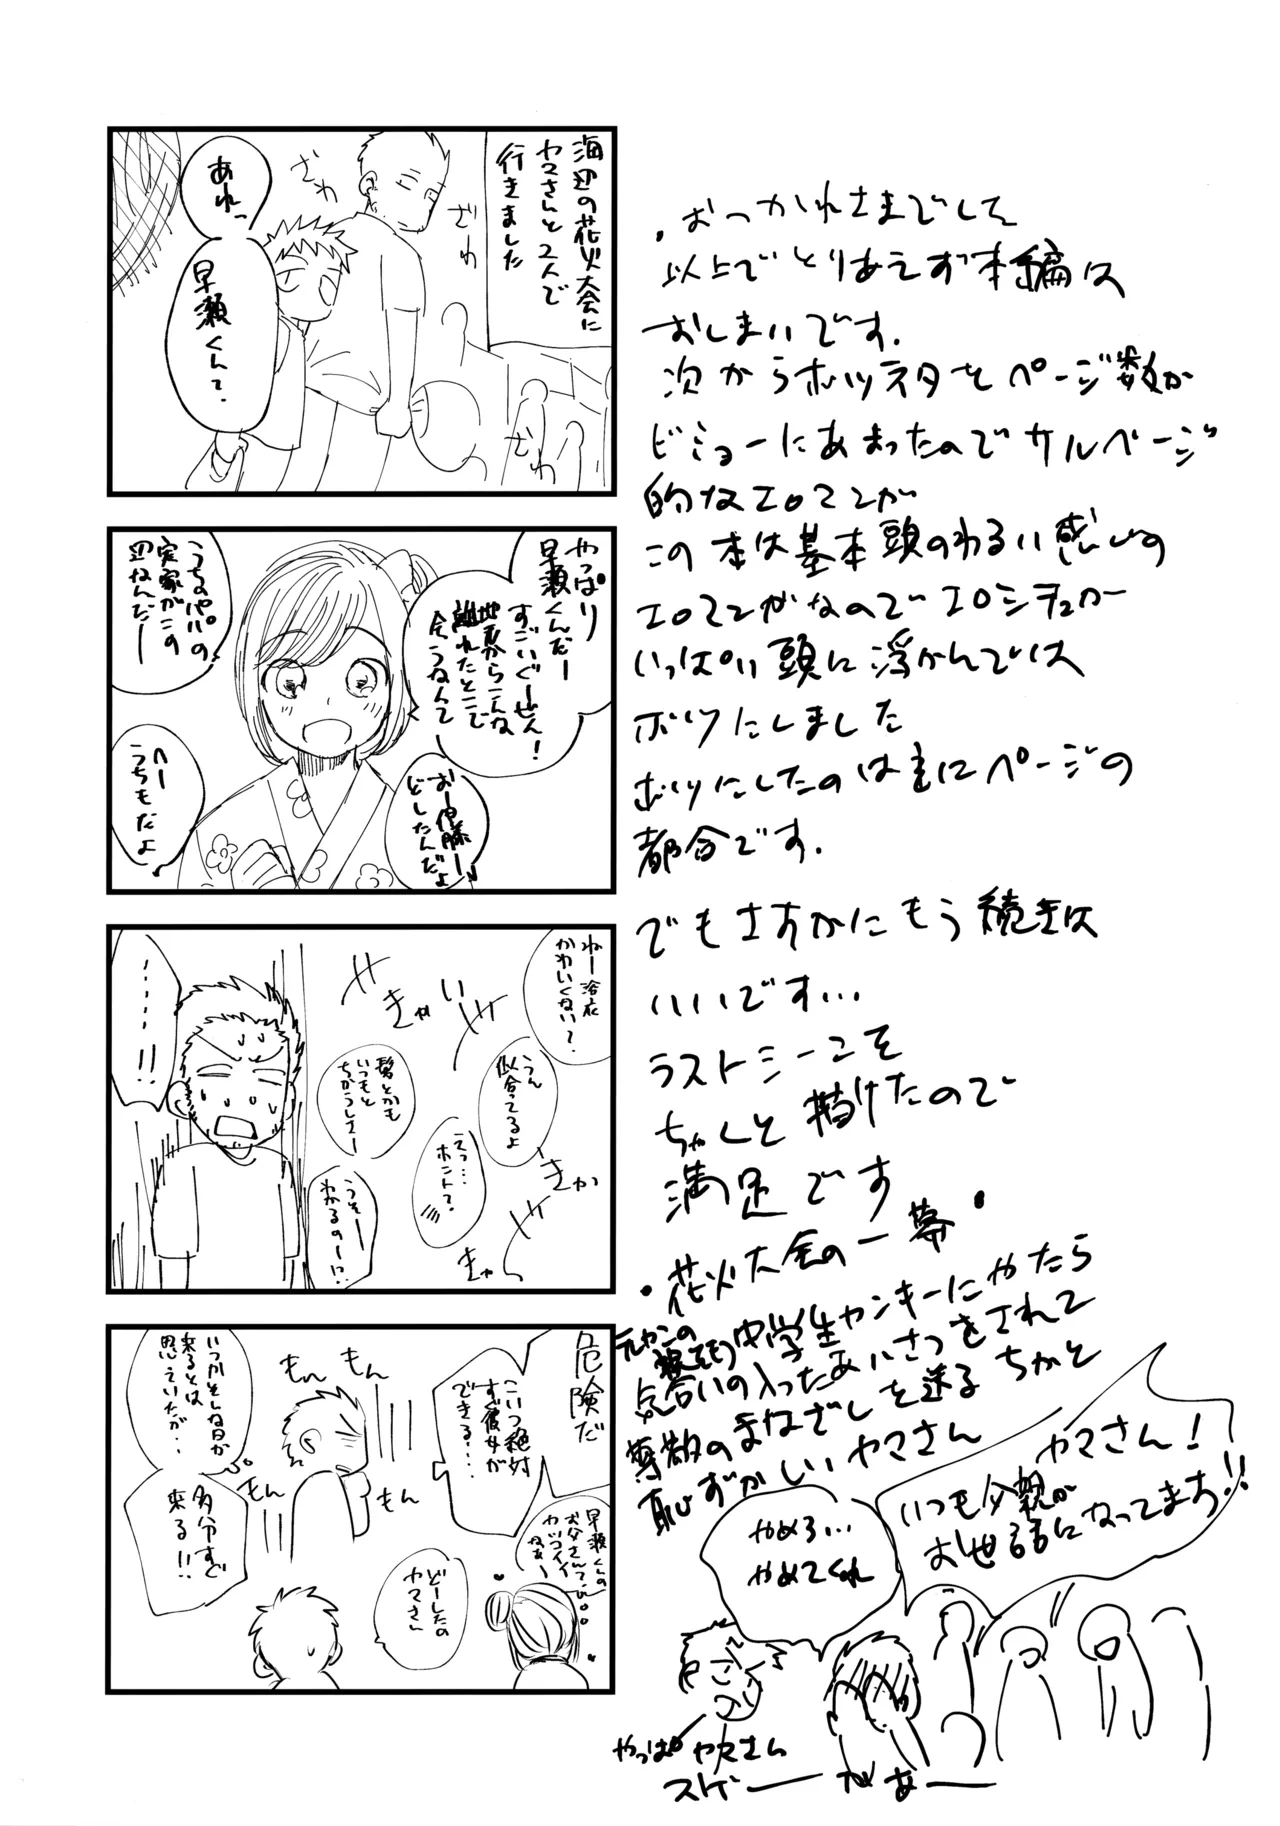 海辺の花火大会に
ヤマさんと2人で
行きました
ざわ
ざわ
ざわ
あれっ
早瀬くんて、
やっぱり
早瀬くんだー
すごいぐーぜん!
地元からこんな
離れたとこで
会うなんて
うちのパパの
実家がこの
辺なんだー
おー伊藤ー
どしたんだよ
へー
うちもだよ
ねー浴衣
かわいくない?
うん
似合ってるよ
髪とかも
いつもと
ちがうしさー
えっ…
ホント?
うそー
わかるのー!?
きゃい
きゃ
きゃ
……!!
危険だ
こいつ絶対
すぐ彼女が
できる…
もん
もん
もん
もん
いつかそんな日が
来るとは
思っていたが…
多分すぐ
来る!!
早瀬くんの
お父さんて
カッコイイ
なぁー
どーしたの
ヤマさん
・おつかれさまでした
以上でとりあえず本編は
おしまいです.
次からボツネタをページ数が
ビミョーにあまったのでサルベージ
的なエロマンが
この本は基本頭のわるい感じの
エロマンガなのでエロシチュが
いっぱい頭に浮かんでは
ボツにしました
ボツにしたのは主にページの
都合です.
でもさすがにもう続きは
いいです…
ラストシーンを
ちゃんと描けたので
満足です
・花火大会の一幕・
元ヤンの
中学生ヤンキーにやたら
気合いの入ったあいさつをされて
尊敬のまなざしを送るちかと
恥ずかしいヤマさん
ヤマさん!
いつも父親が
お世話になってます!!
やめろ…
やめてくれ
やっぱヤマさん
スゲーなぁー